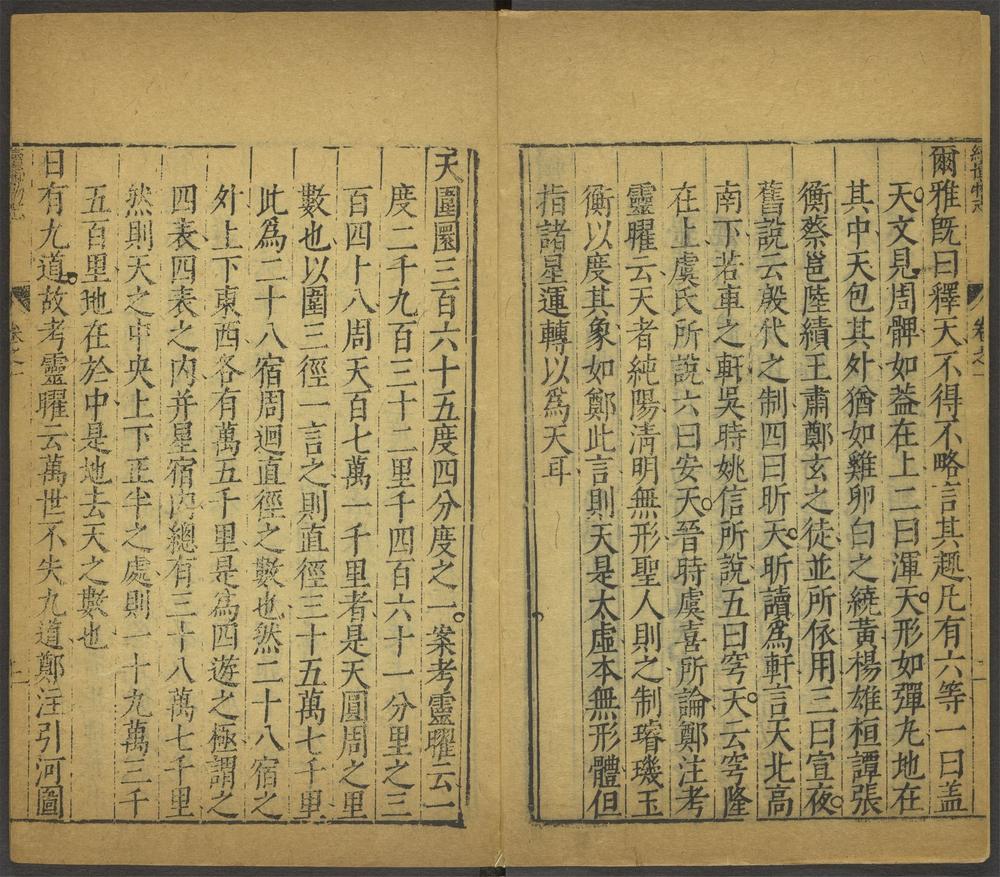 續博物志 卷之一 一
爾雅既曰釋天不得不略言其趣凡有六等一曰盖
天文見周髀如葢在上二曰渾天形如彈丸地在
其中天包其外猶如雞卵白之繞黃楊雄桓譚張
衡蔡邕陸績王肅鄭玄之徒並所依用三曰宣夜
舊說云殷代之制四曰昕天昕讀爲軒言天北高
南下若車之軒吳時姚信所說五曰穹天云穹隆
在上虞氏所說六曰安天晉時虞喜所論鄭注考
靈曜云天者純陽淸明無形聖人則之制璿璣玉
衡以度其象如鄭此言則天是太虛本無形體但
指諸星運轉以爲天耳
天圍圜三百六十五度四分度之一案考靈曜云一
度二千九百三十二里千四百六十一分里之三
百四十八周天百七萬一千里者是天圓周之里
數也以圍三徑一言之則直徑三十五萬七千里
此爲二十八宿周迴直徑之數也然二十八宿之
外上下東西各有萬五千里是爲四遊之極謂之
四表四表之内并星宿内總有三十八萬七千里
然則天之中央上下正半之處則一十九萬三千
五百里地在於中是地去天之數也
日有九道故考靈曜云萬世不失九道鄭注引河圖
卷之一 二